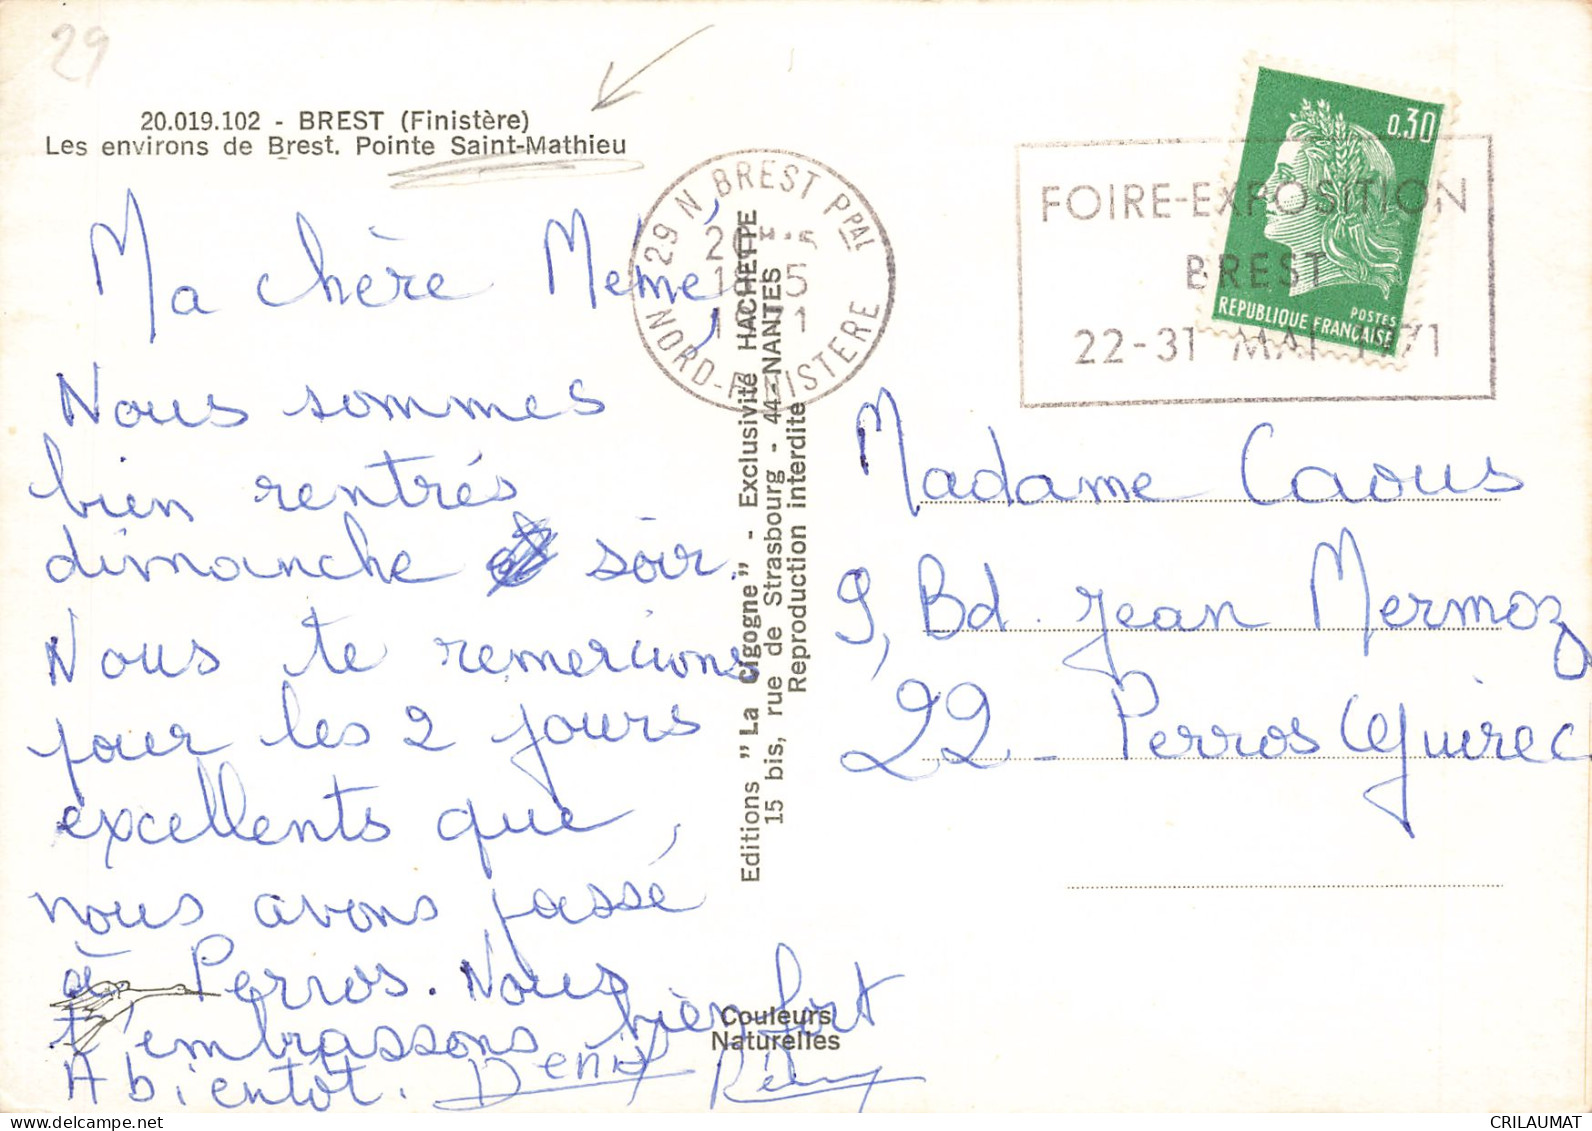 29
20.019.102 - BREST (Finistère)
Les environs de Brest. Pointe Saint-Mathieu
Ma chère Mémé,
Nous sommes
bien rentrés
dimanche soir.
Nous te remercions
pour les 2 jours
excellents que
nous avons passé
à Perros. Nous
t'embrassons bien fort
A bientôt. Denis Rémy
29 N BREST PPAL
NORD-FINISTERE
Editions "La Cigogne" - Exclusivité HACHETTE
15 bis, rue de Strasbourg - 44-NANTES
Reproduction interdite
Couleurs
Naturelles
0,30
POSTES
REPUBLIQUE FRANÇAISE
FOIRE-EXPOSITION
BREST
22-31 MAI 1971
Madame Caous
9, Bd. Jean Mermoz
22 - Perros Guirec
CRILAUMAT